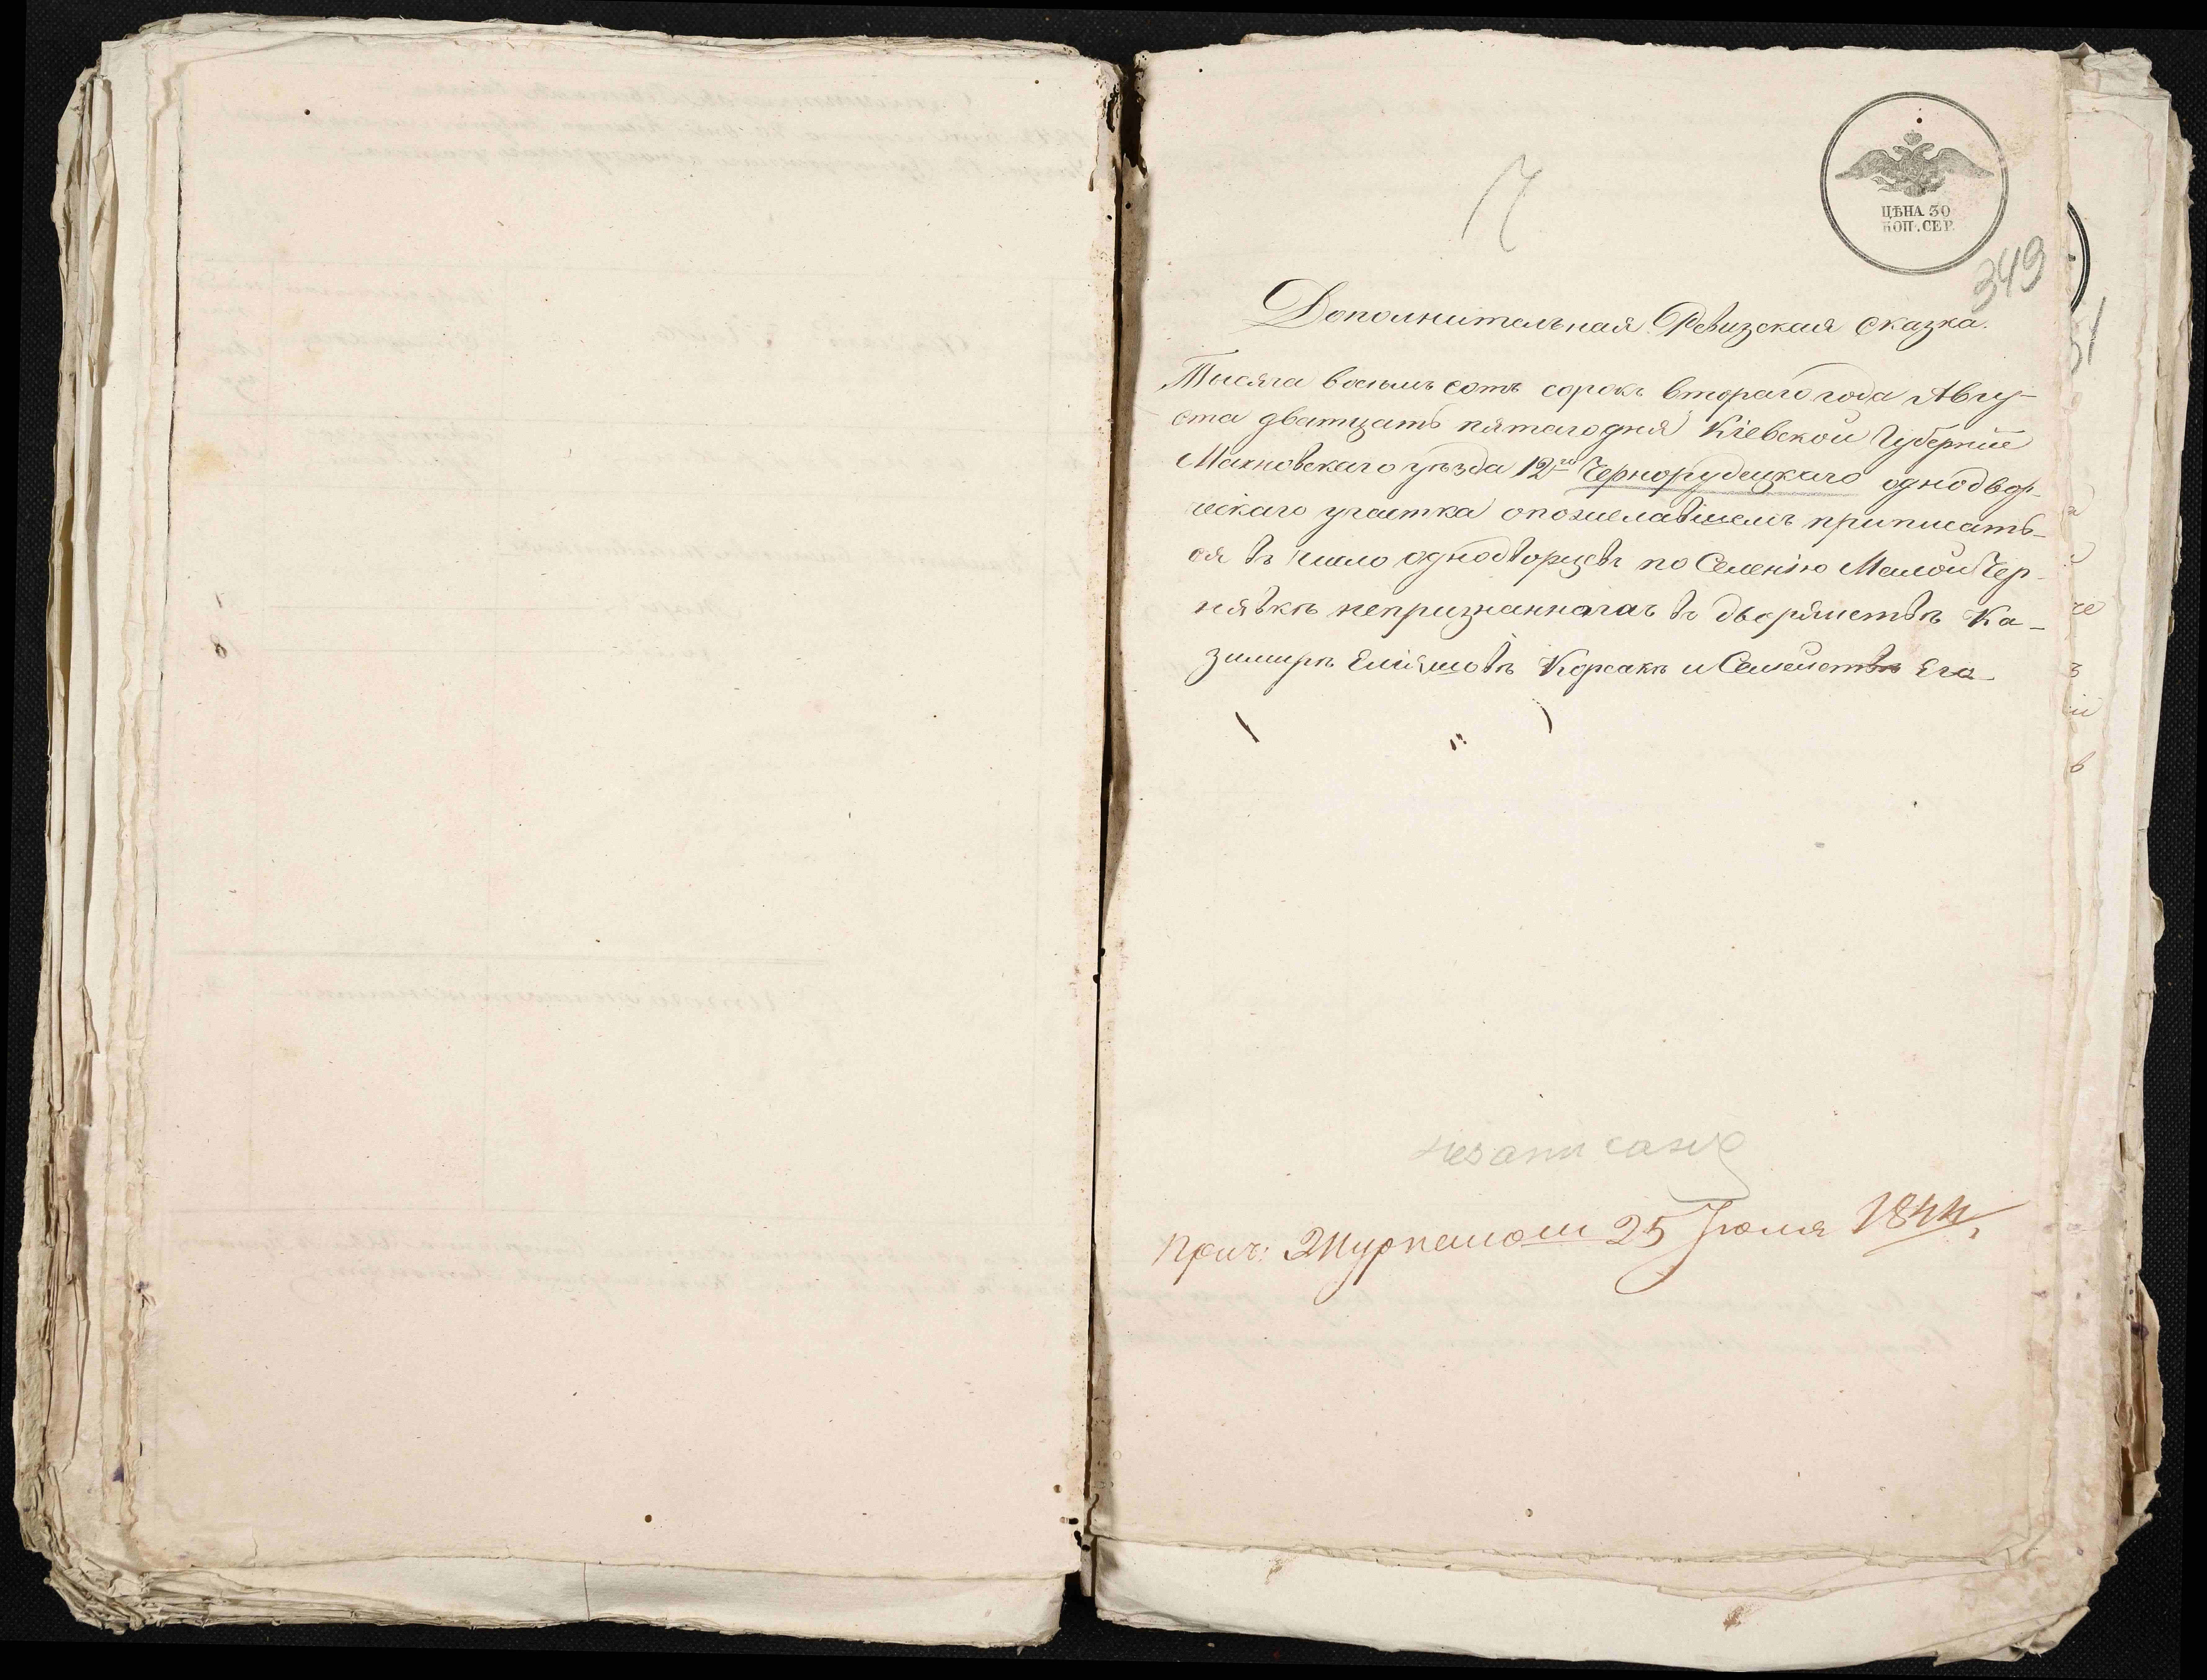 ЦѢНА 30
КОП. СЕР.
349
Дополнительная Ревизская сказка.
Тысяча восемь сотъ сорокъ втораго года Авгу-
ста дватцать пятаго дня Кіевской Губерніи
Махновскаго уѣзда 12го Чернорудецкаго однодвор-
ческаго участка опожелавшемъ приписать-
ся въ число однодворцевъ по Селенію Малой Чер-
нявкѣ непризнанногаъ въ дворянствѣ Ка-
зимирѣ Еліяшовѣ Корсакѣ и Семействѣ Его
незаписано
25 Іюля 1844